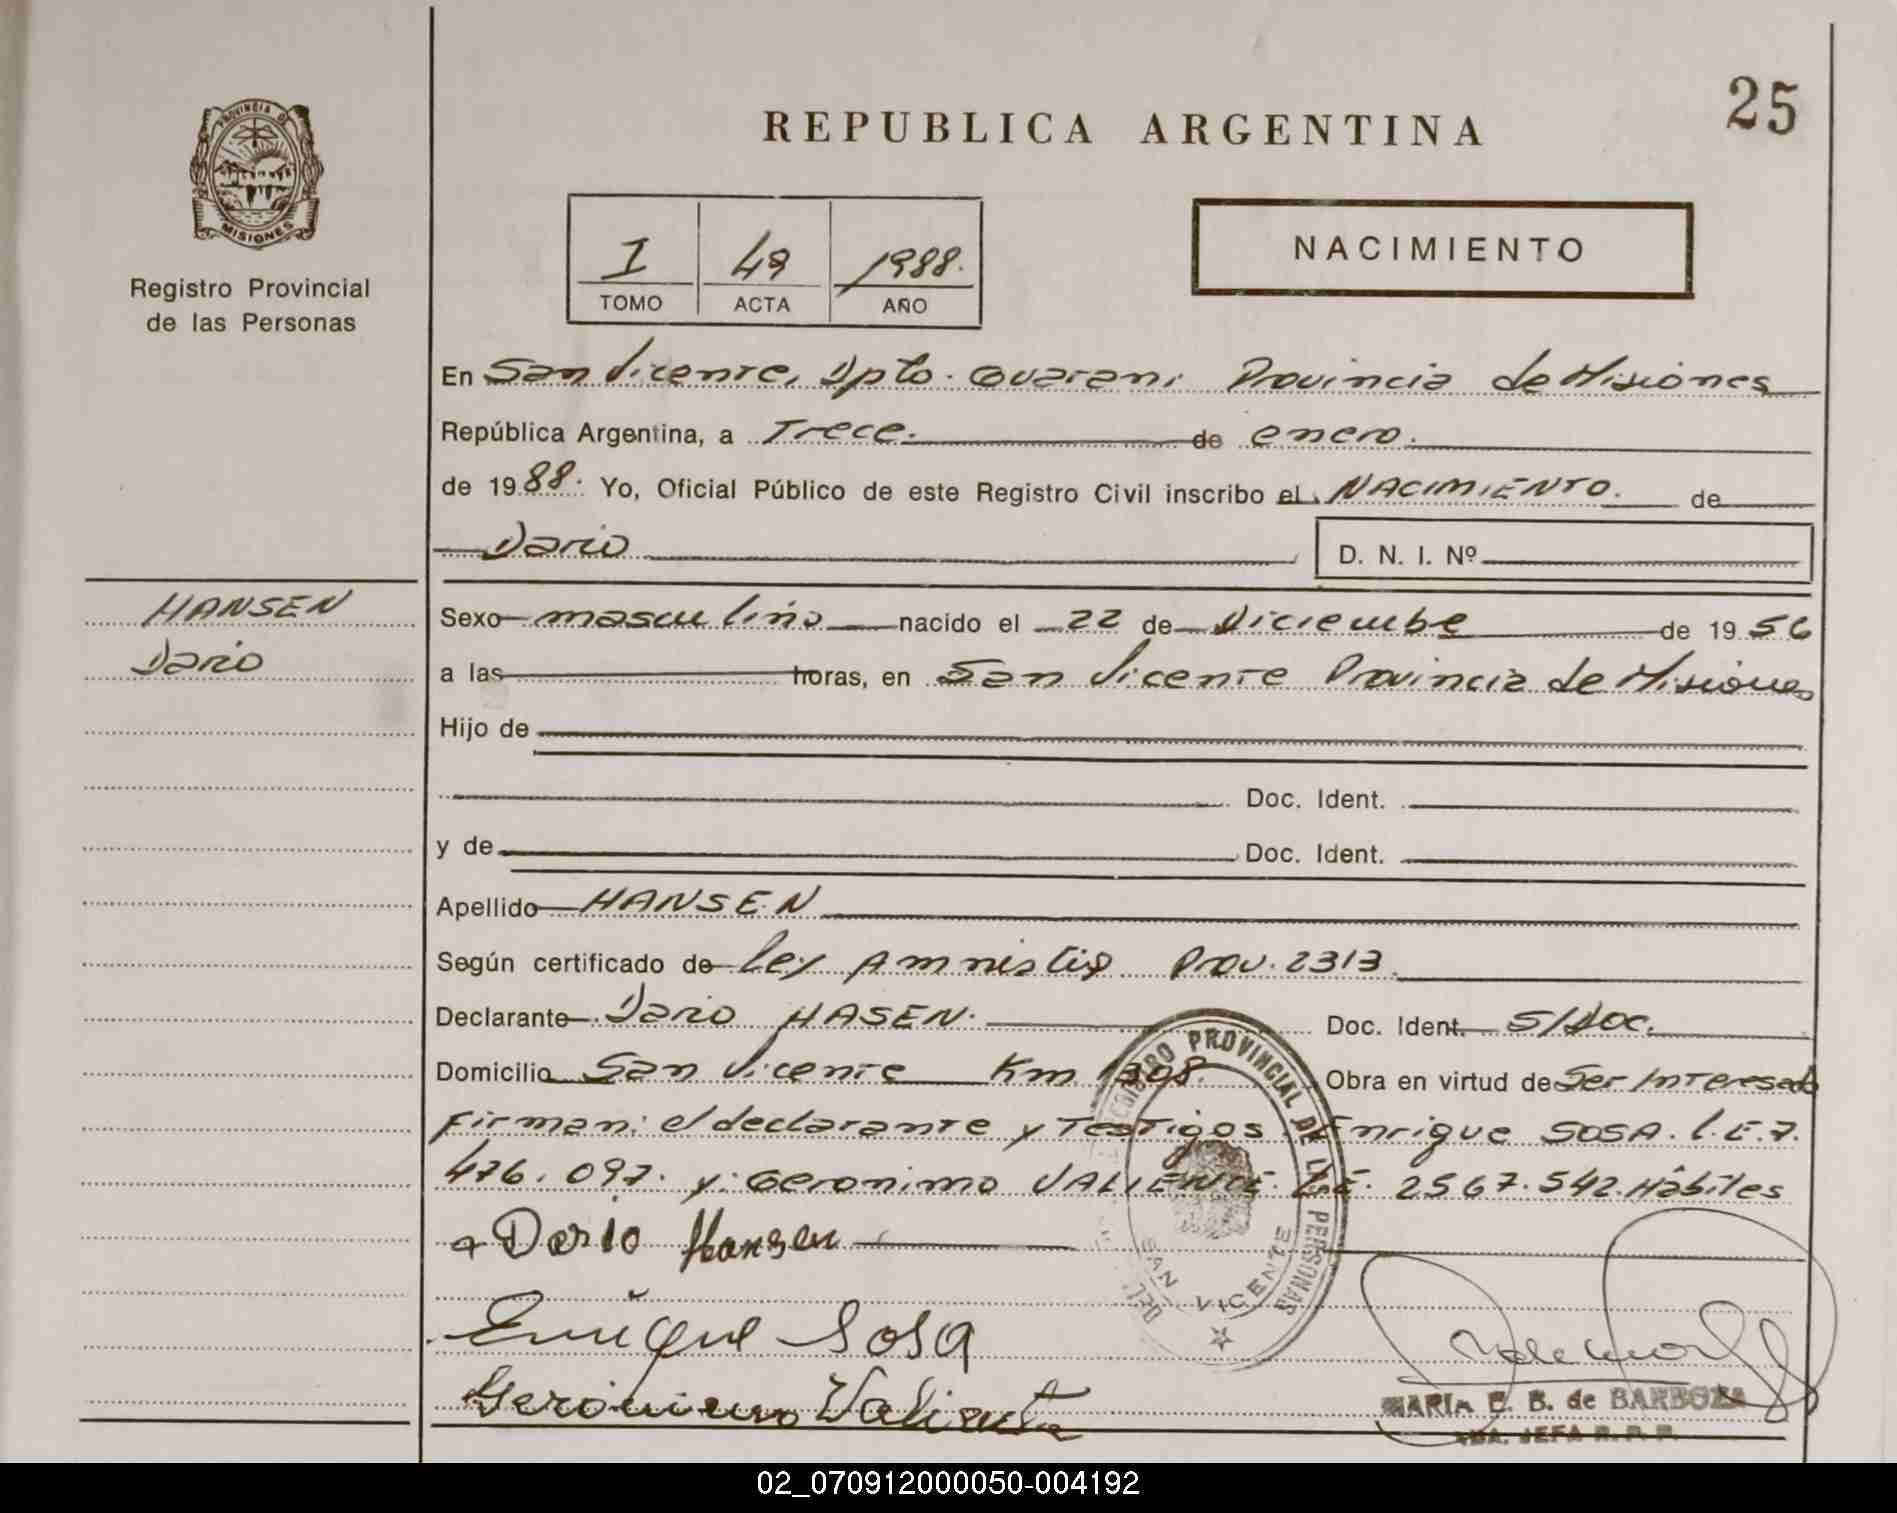 25
REPUBLICA ARGENTINA
PROVINCIA DE
MISIONES
Registro Provincial
de las Personas
I 49 1988.
TOMO ACTA AÑO
NACIMIENTO
En San Vicente, Dpto. Guarani Provincia de Misiones
República Argentina, a Trece. de enero.
de 1988. Yo, Oficial Público de este Registro Civil inscribo el NACIMIENTO. de
Dario D. N. I. Nº
HANSEN
Dario
Sexo masculino nacido el 22 de Diciembre de 1956
a las horas, en San Vicente Provincia de Misiones
Hijo de
Doc. Ident.
y de Doc. Ident.
Apellido HANSEN
Según certificado de Ley Amnistia Prov. 2313
Declarante Dario HASEN. Doc. Ident. S/Doc.
Domicilio San Vicente Km 1308. Obra en virtud de Ser Interesado
Firman: el declarante y Testigos Enrique SOSA. L.E.7.
476.097. y: Geronimo VALIENTE. L.E. 2567.542. Hábiles
Dario Hansen
Enrique Sosa
Geronimo Valiente
REGISTRO PROVINCIAL DE LAS PERSONAS
SAN VICENTE
MARIA E. B. de BARBOZA
JEFA R. P. P.
02_070912000050-004192